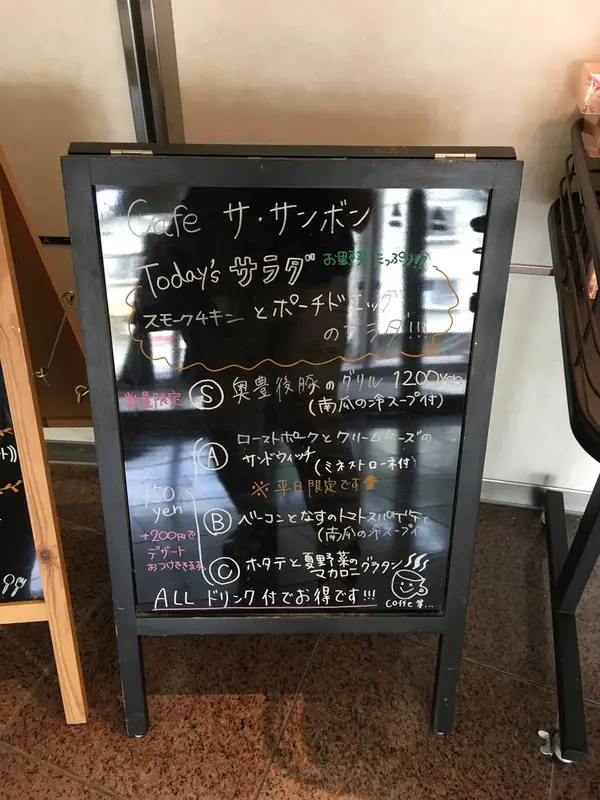 Cafe サ・サンボン
Today's サラダ お野菜たっぷり!!
スモークチキン とポーチドエッグ
のサラダ!!!
数量限定 Ⓢ 奥豊後豚のグリル 1200yen
(南瓜の冷スープ付)
Ⓐ ローストポークとクリームチーズの
サンドウィッチ (ミネストローネ付)
※平日限定です
yen
Ⓑ ベーコンとなすのトマトスパゲティ
(南瓜の冷スープ付)
+200円で
デザート
おつけできます。
Ⓒ ホタテと夏野菜の
マカロニグラタン
ALL ドリンク付でお得です!!!
Coffe